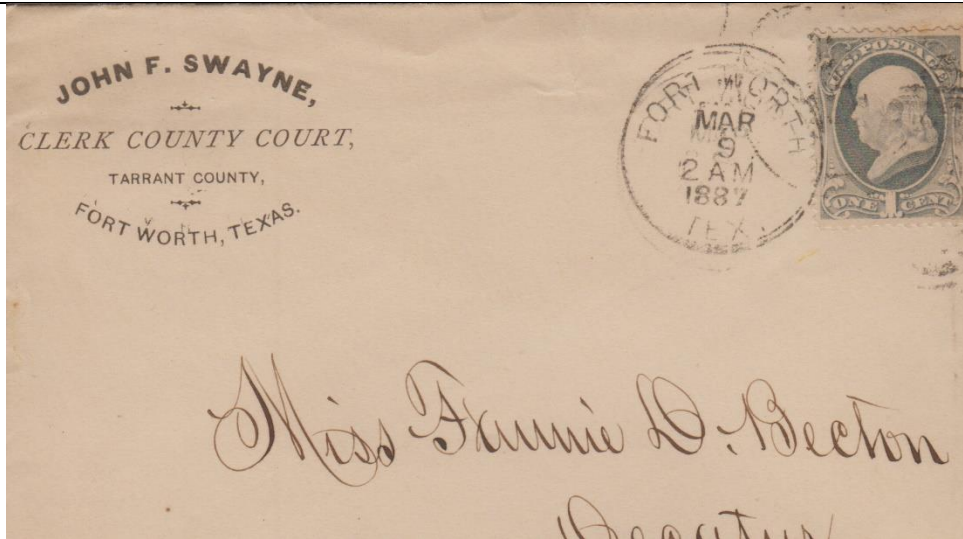 JOHN F. SWAYNE,
CLERK COUNTY COURT,
TARRANT COUNTY,
FORT WORTH, TEXAS.
FORT WORTH
MAR
9
2 AM
1887
TEX.
U.S. POSTAGE
ONE 1 CENT
Miss Fannie D. Becton
Decatur